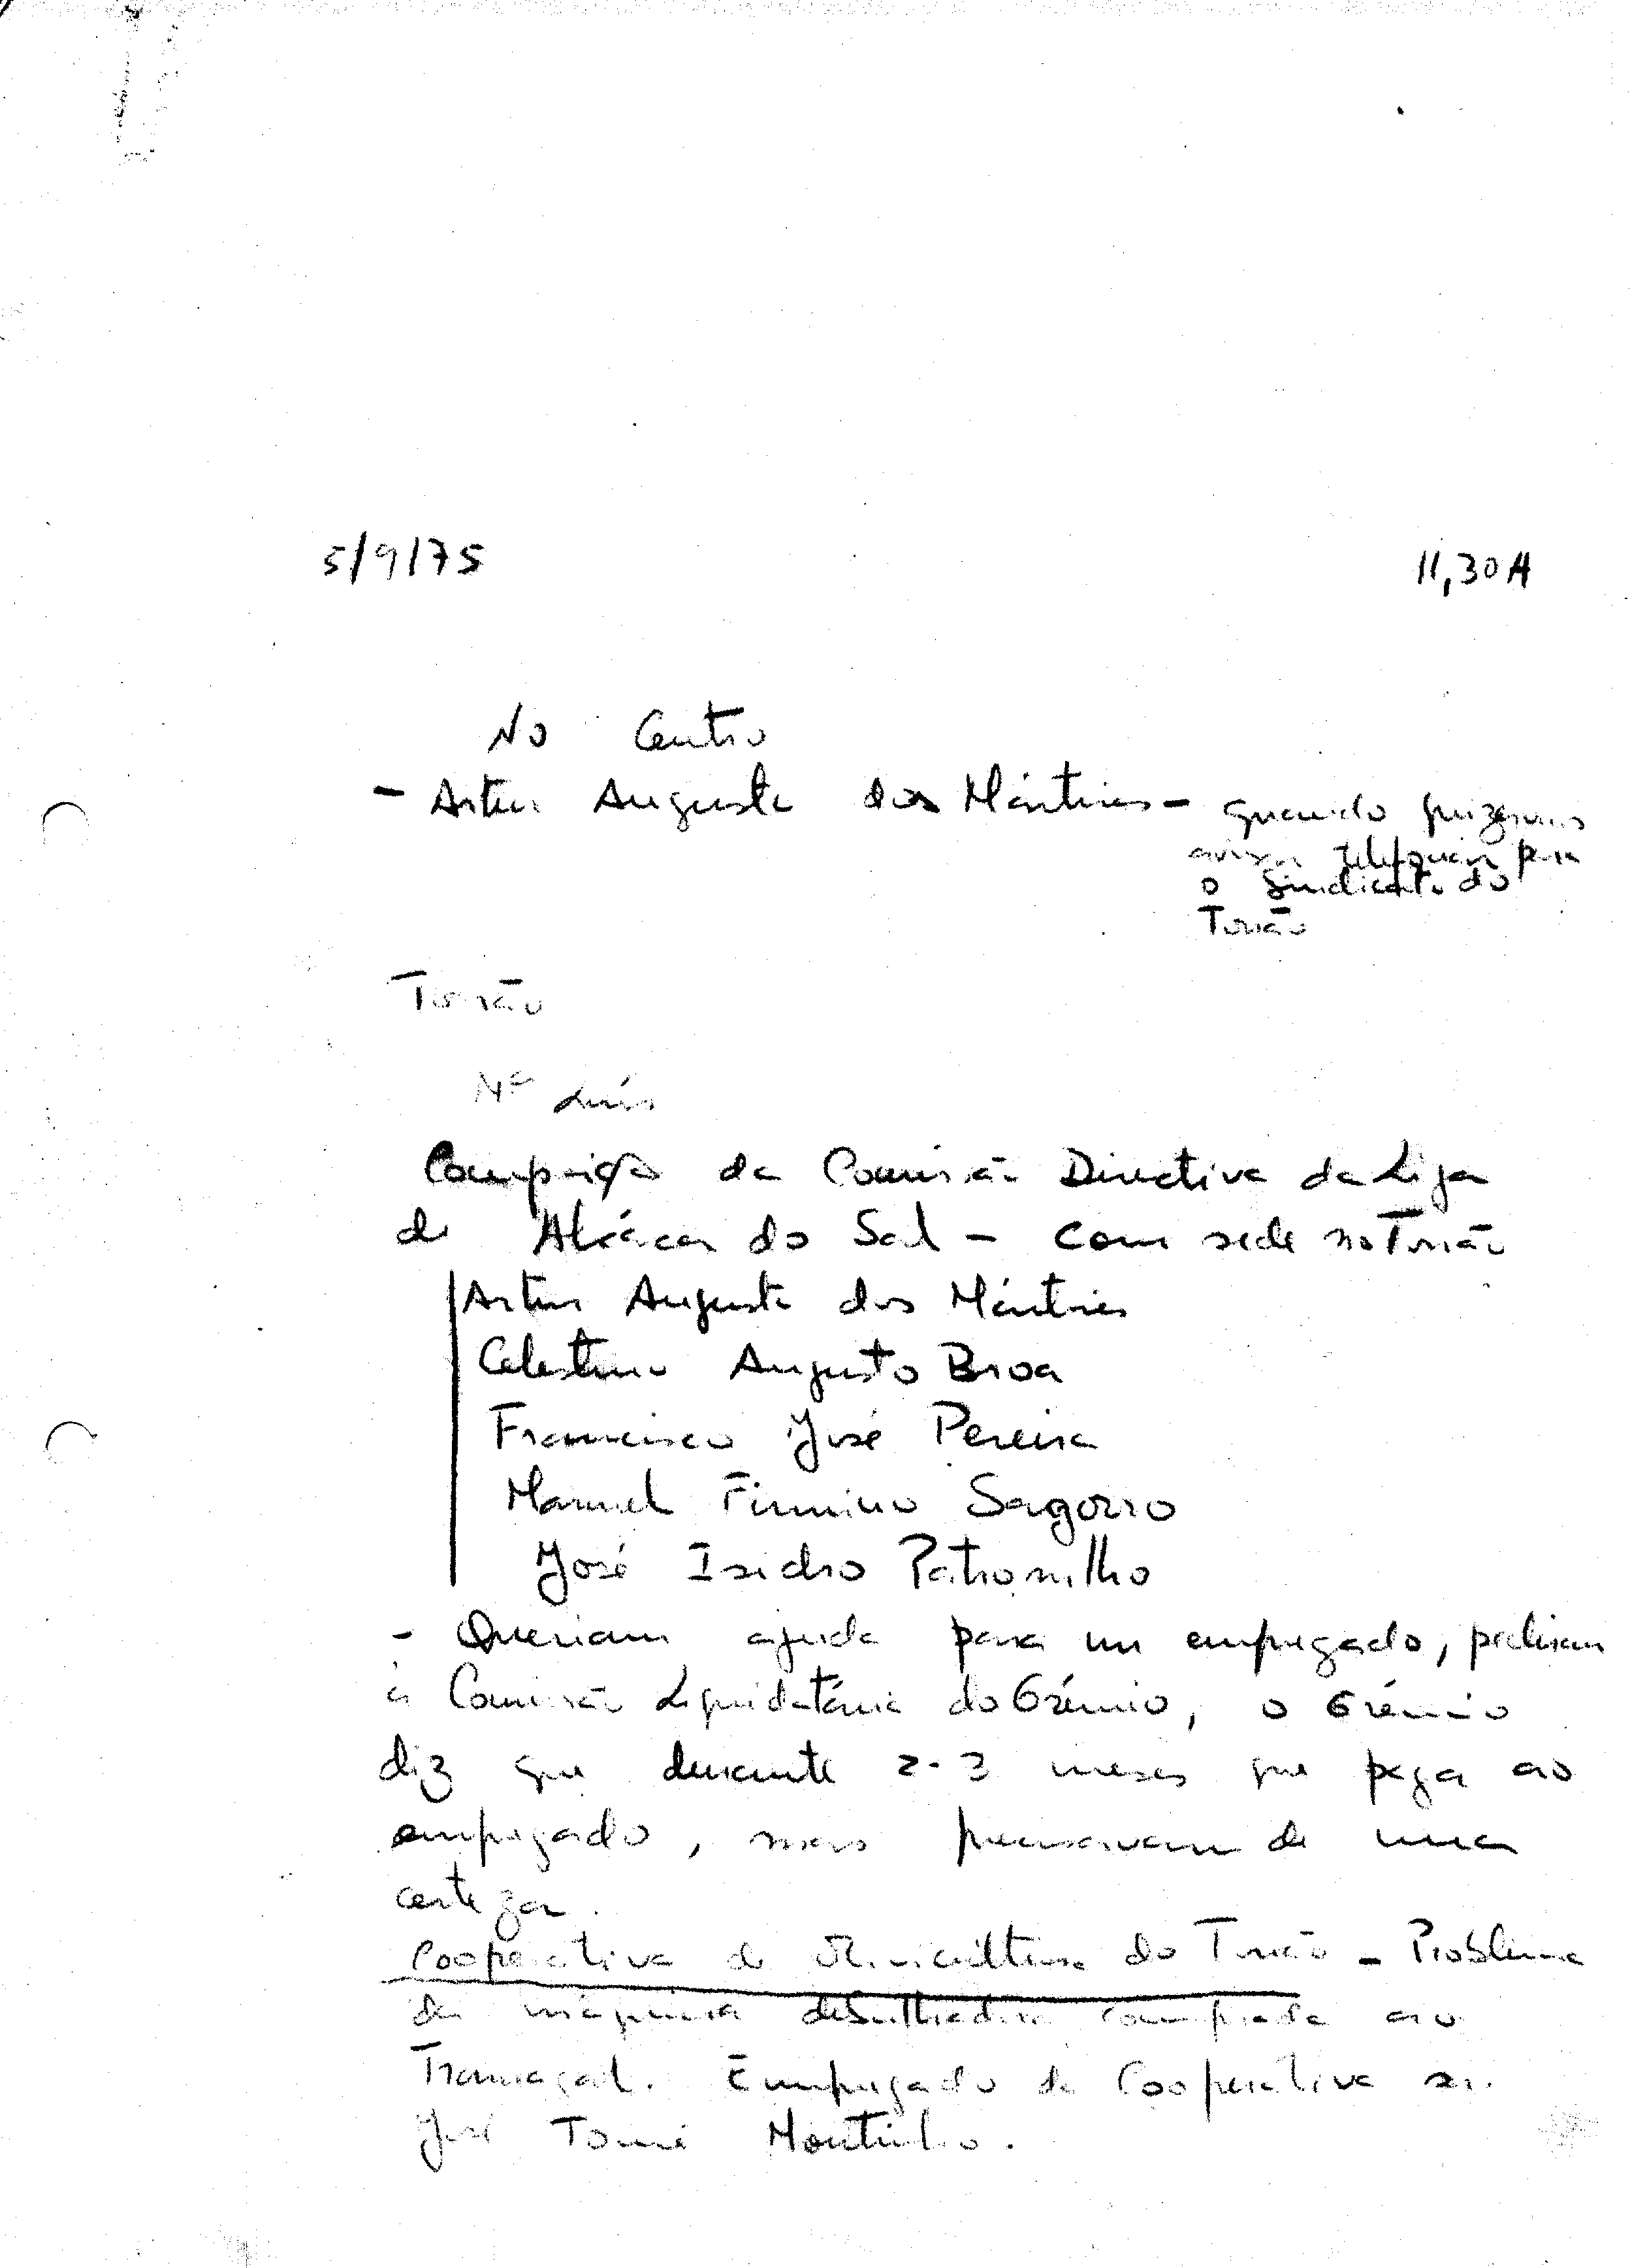 5/9/75
11,30H
No Centro
- Artur Augusto dos Mártires - quando quizermos
avisar telefonar para
o Sindicato do
Torrão
Torrão
Luís
Composição da Comissão Directiva da Liga
de Alcácer do Sal - com sede no Torrão
Artur Augusto dos Mártires
Celestino Augusto Broa
Francisco José Pereira
Manuel Firmino Sagorro
José Isidro Patronilho
- Queriam ajuda para um empregado, pediram
à Comissão Liquidatária do Grémio, o Grémio
diz que durante 2-3 meses que paga ao
empregado, mas precisavam de uma
certeza.
Cooperativa de Olivicultura do Torrão - Problema
da máquina debulhadora comprada ao
Tramagal. Empregado da Cooperativa sr.
José Tomé Moutinho.